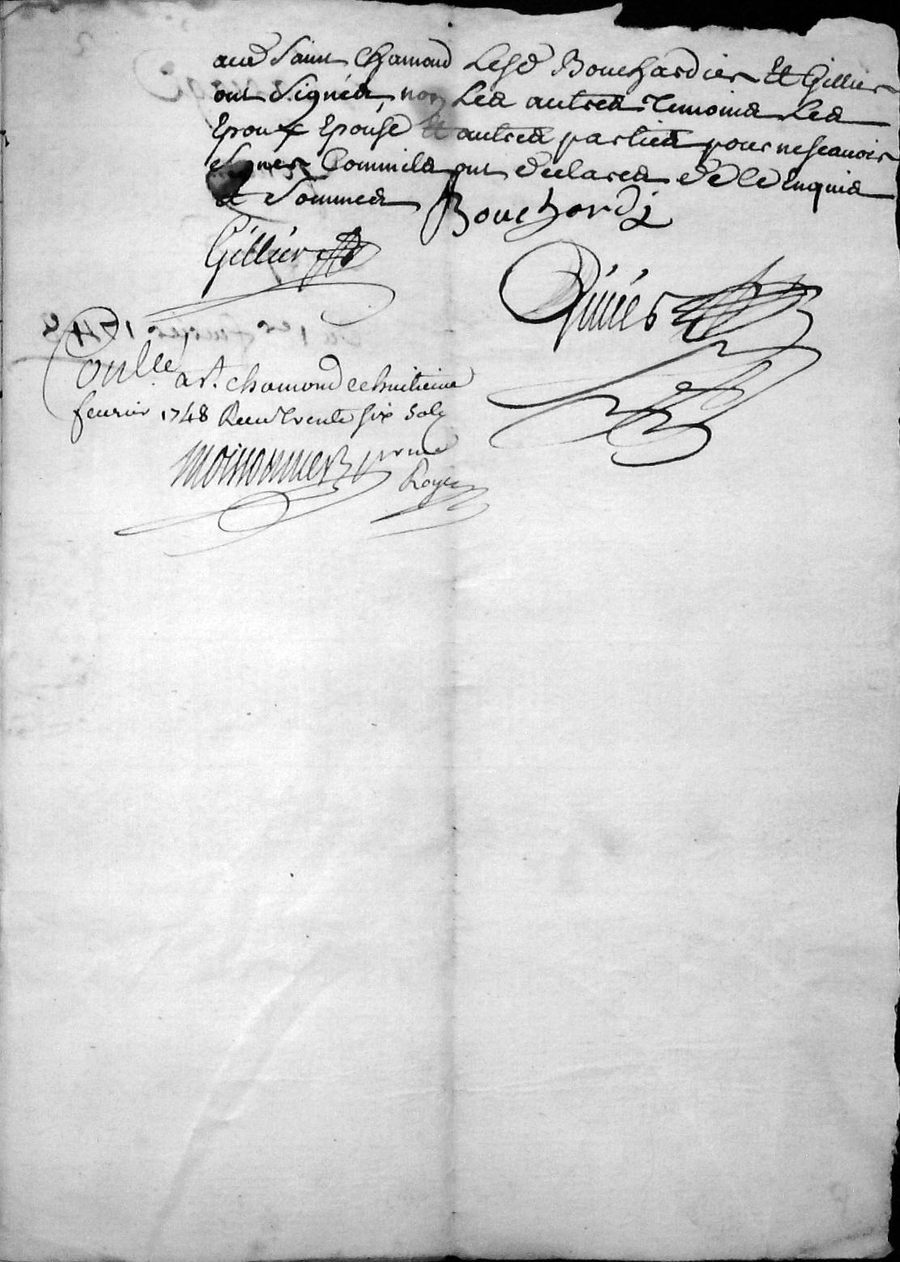 aud Saint Chamond Lesd Bouchardier Et Gillier
ont Signés, non Les autres temoins Les
Epoux Epouse Et autres parties pour ne scavoir
Signer Comm ils ont declarés de ce Enquis
Et Sommés
Bouchardi
Gillier
Conllé
a st. chamond ce huitieme
fevrier 1748 Receu trente six sols
Moissonnier
Roye